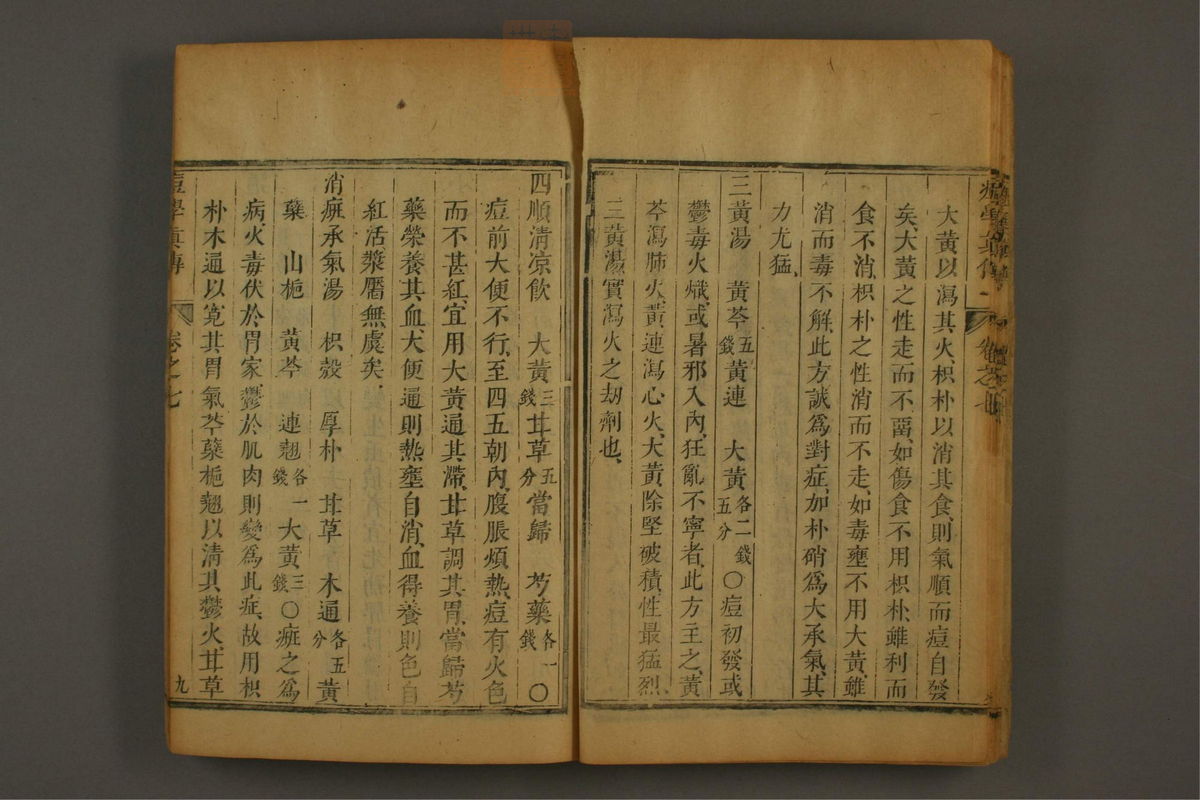 大黃以瀉其火、枳朴以消其食、則氣順而痘自發
矣、大黃之性走而不畱、如傷食不用枳朴、雖利而
食不消、枳朴之性消而不走、如毒壅不用大黃、雖
消而毒不解、此方誠爲對症、加朴硝爲大承氣、其
力尤猛、
三黃湯 黃芩五錢 黃連 大黃各二錢五分 〇痘初發或
鬱毒火熾、或暑邪入內、狂亂不寧者、此方主之、黃
芩瀉肺火、黃連瀉心火、大黃除堅破積、性最猛烈、
三黃湯實瀉火之刼劑也、
四順淸凉飲 大黃三錢 甘草五分 當歸 芍藥各一錢 〇
痘前大便不行、至四五朝內、腹脹煩熱、痘有火色
而不甚紅、宜用大黃通其滯、甘草調其胃、當歸芍
藥榮養其血、大便通則熱壅自消、血得養則色自
紅活漿厴無虞矣、
消痘承氣湯 枳殼 厚朴 甘草 木通各五分 黃
蘗 山梔 黃芩 連翹各一錢 大黃三錢 〇痘之爲
病、火毒伏於胃家、鬱於肌肉則變爲此症、故用枳
朴木通以寬其胃氣、芩蘗梔翹以淸其鬱火、甘草
痘學眞傳 卷之七 九